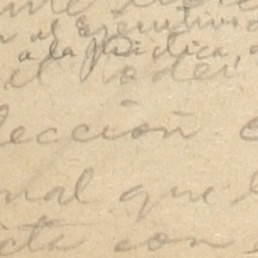 al ejecutivo
a la práctica,
el poder
lección
nal que
cta con